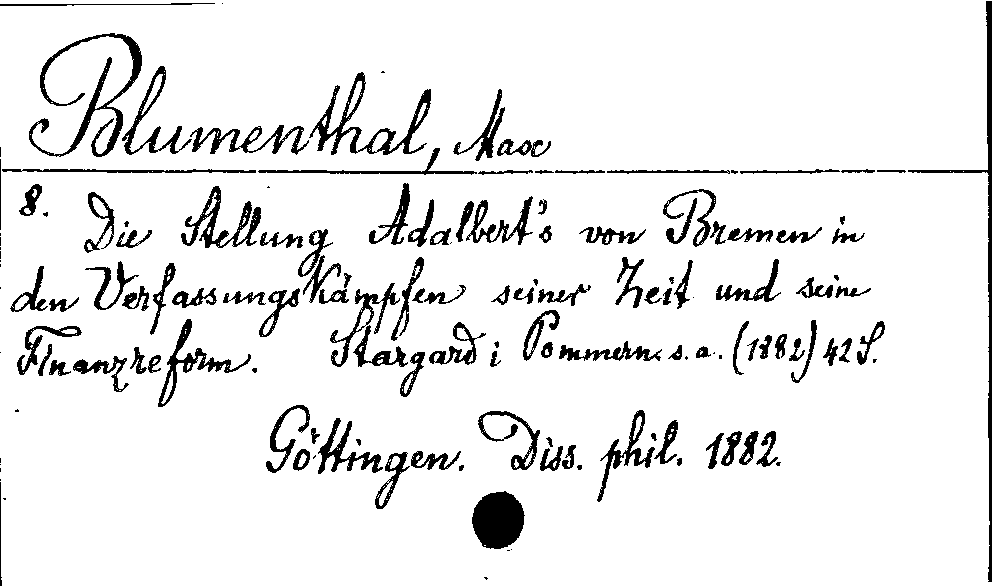 Blumenthal, Max
8. Die Stellung Adalbert's von Bremen in
den Verfassungskämpfen seiner Zeit und seine
Finanzreform. Stargard i Pommern. s. a. (1882) 42 S.
Göttingen. Diss. phil. 1882.